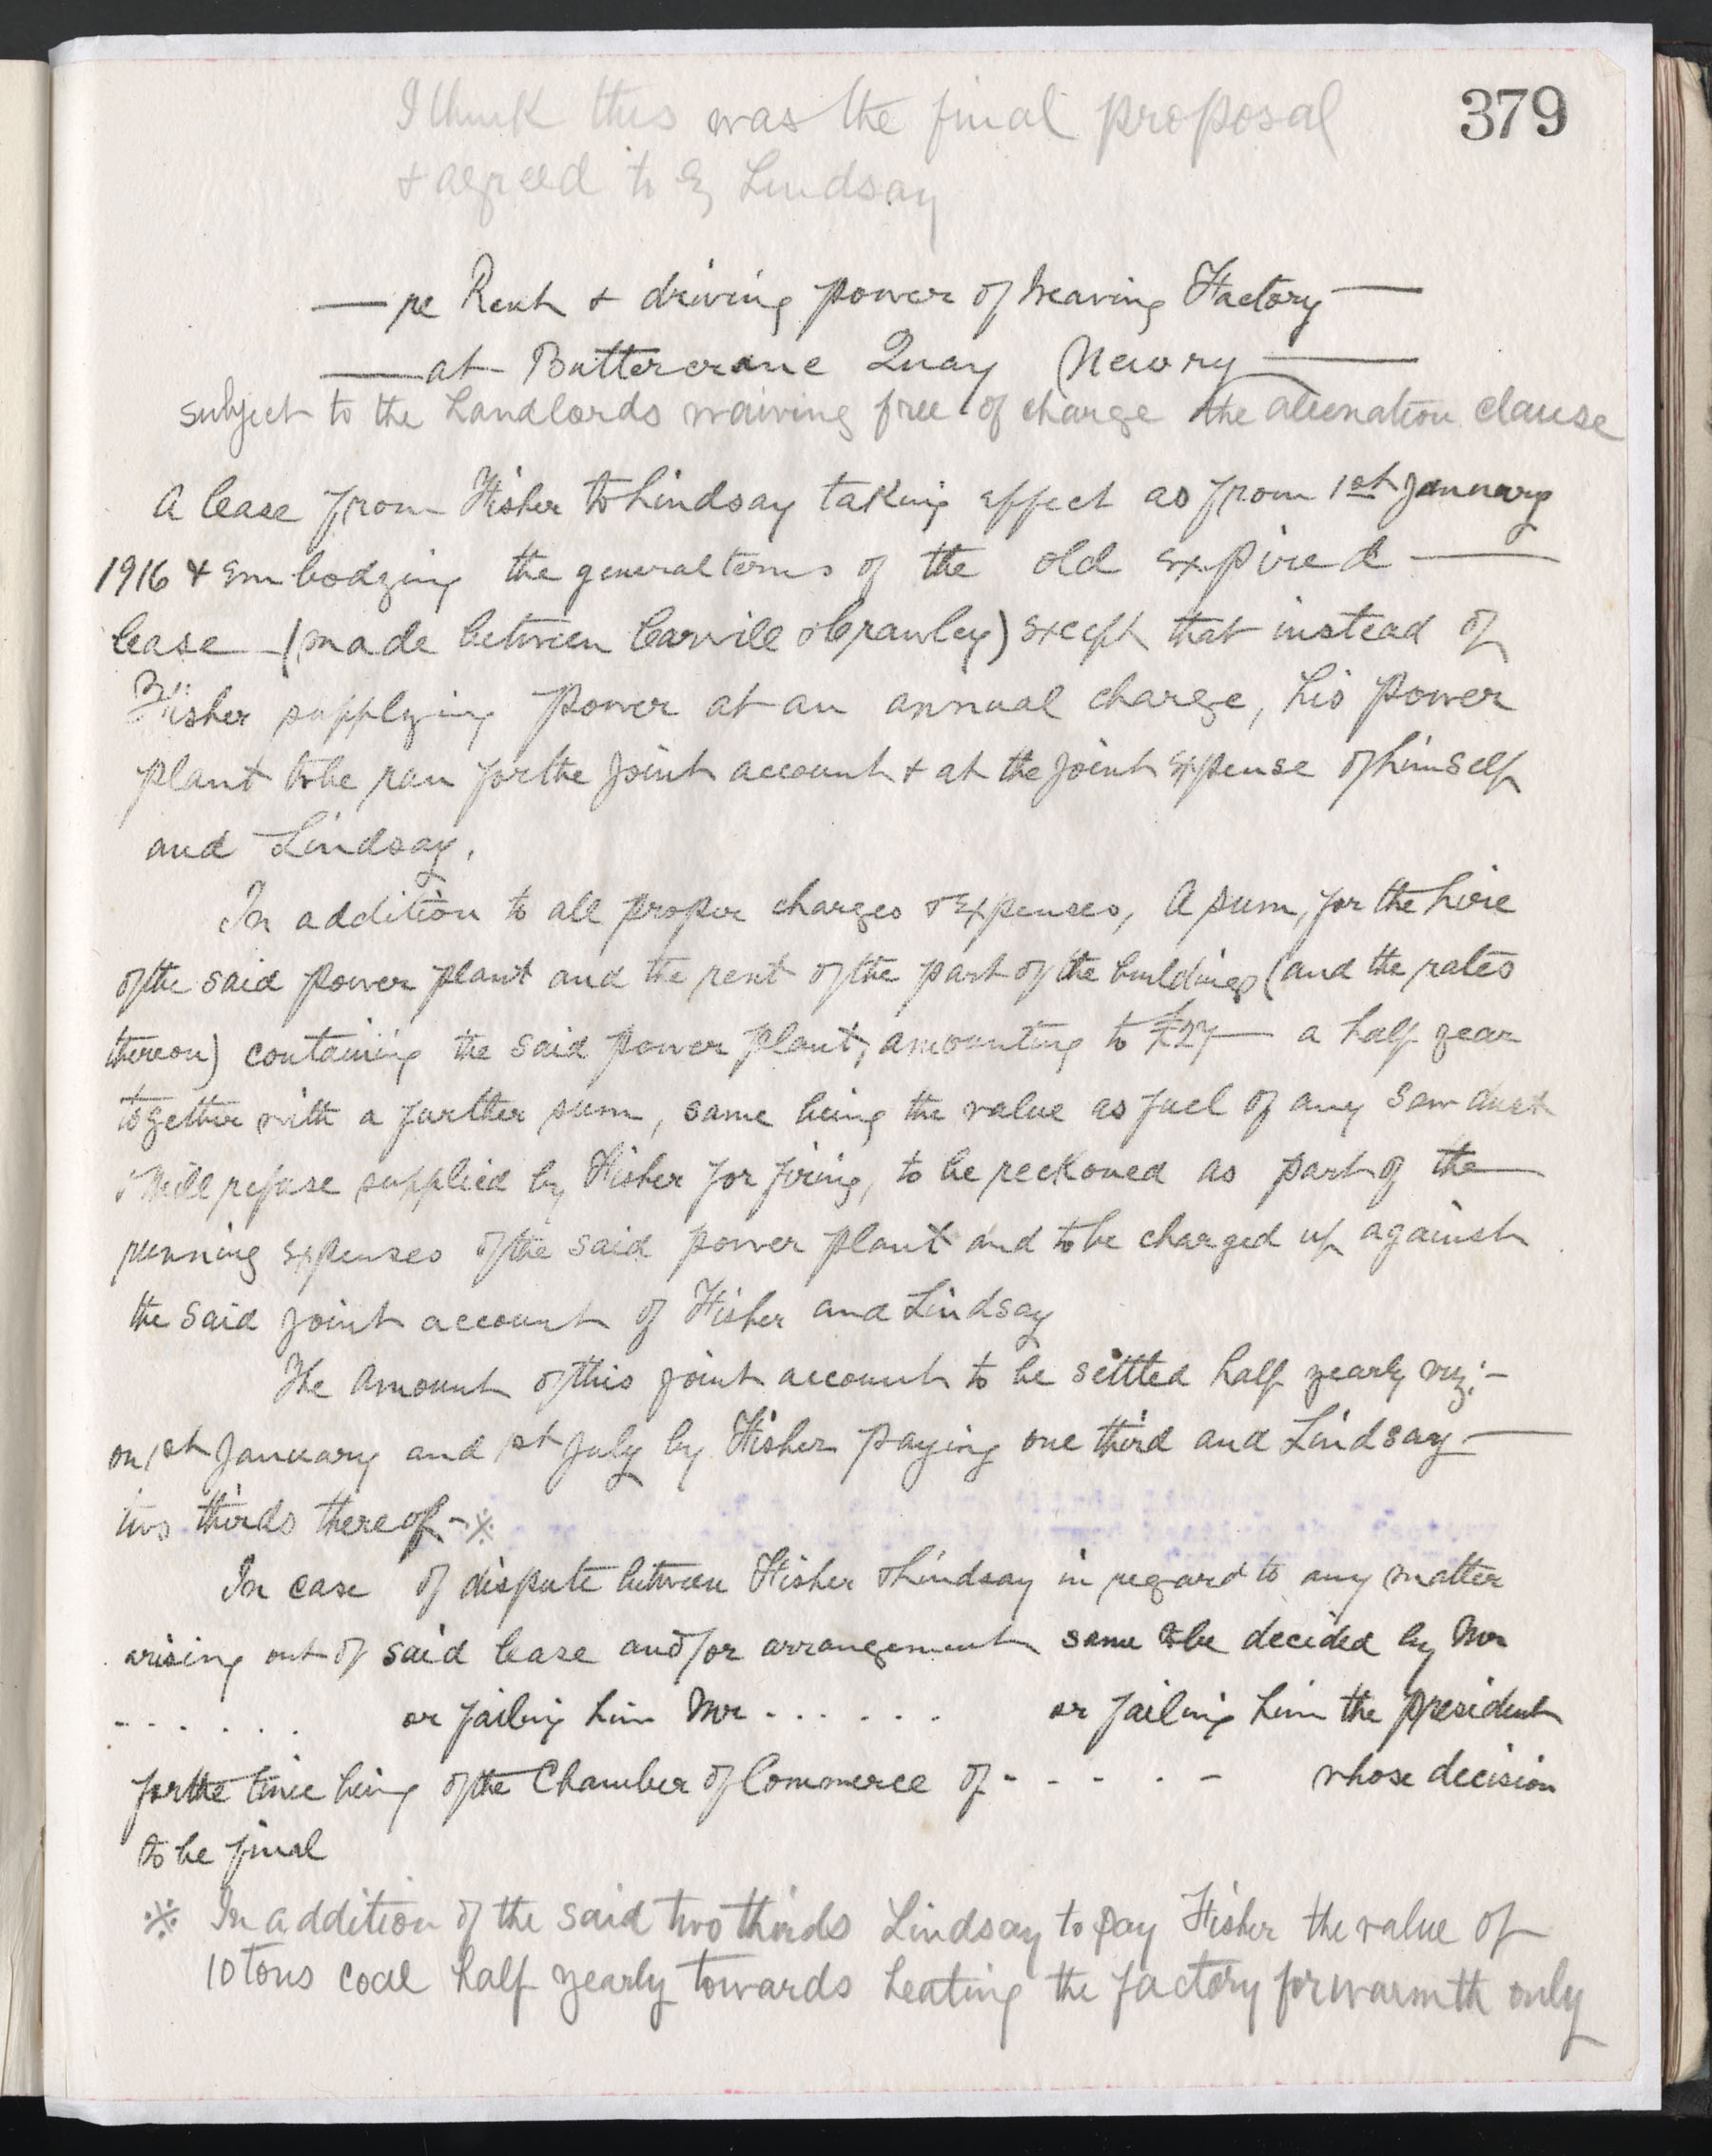 I think this was the final proposal
379
& agreed to by Lindsay
— re Rent & driving power of Weaving Factory —
— at Buttercrane Quay Newry —
subject to the Landlords waiving free of charge the alienation clause
A lease from Fisher to Lindsay taking effect as from 1st January
1916 & Embodying the general terms of the old expired —
lease - (made between Carvill & Crawley) except that instead of
Fisher supplying power at an annual charge, his power
plant to be run for the joint account & at the joint expense of himself
and Lindsay.
In addition to all proper charges & expenses, A sum, for the hire
of the said power plant and the rent of the part of the buildings (and the rates
thereon) containing the said power plant, amounting to £27— a half year
together with a further sum, same being the value as fuel of any Saw dust
& Mill refuse supplied by Fisher for firing, to be reckoned as part of the —
running expenses of the said power plant and to be charged up against
the said joint account of Fisher and Lindsay
The amount of this joint account to be settled half yearly viz:-
on 1st January and 1st July by Fisher paying one third and Lindsay —
two thirds thereof - ※
In case of dispute between Fisher & Lindsay in regard to any matter
arising out of said lease and/or arrangement same to be decided by Mr
. . . . . . or failing him Mr . . . . . . or failing him the president
for the time being of the Chamber of Commerce of - - - - - whose decision
to be final
※ In addition of the said two thirds Lindsay to pay Fisher the value of
10 tons coal half yearly towards heating the factory for warmth only